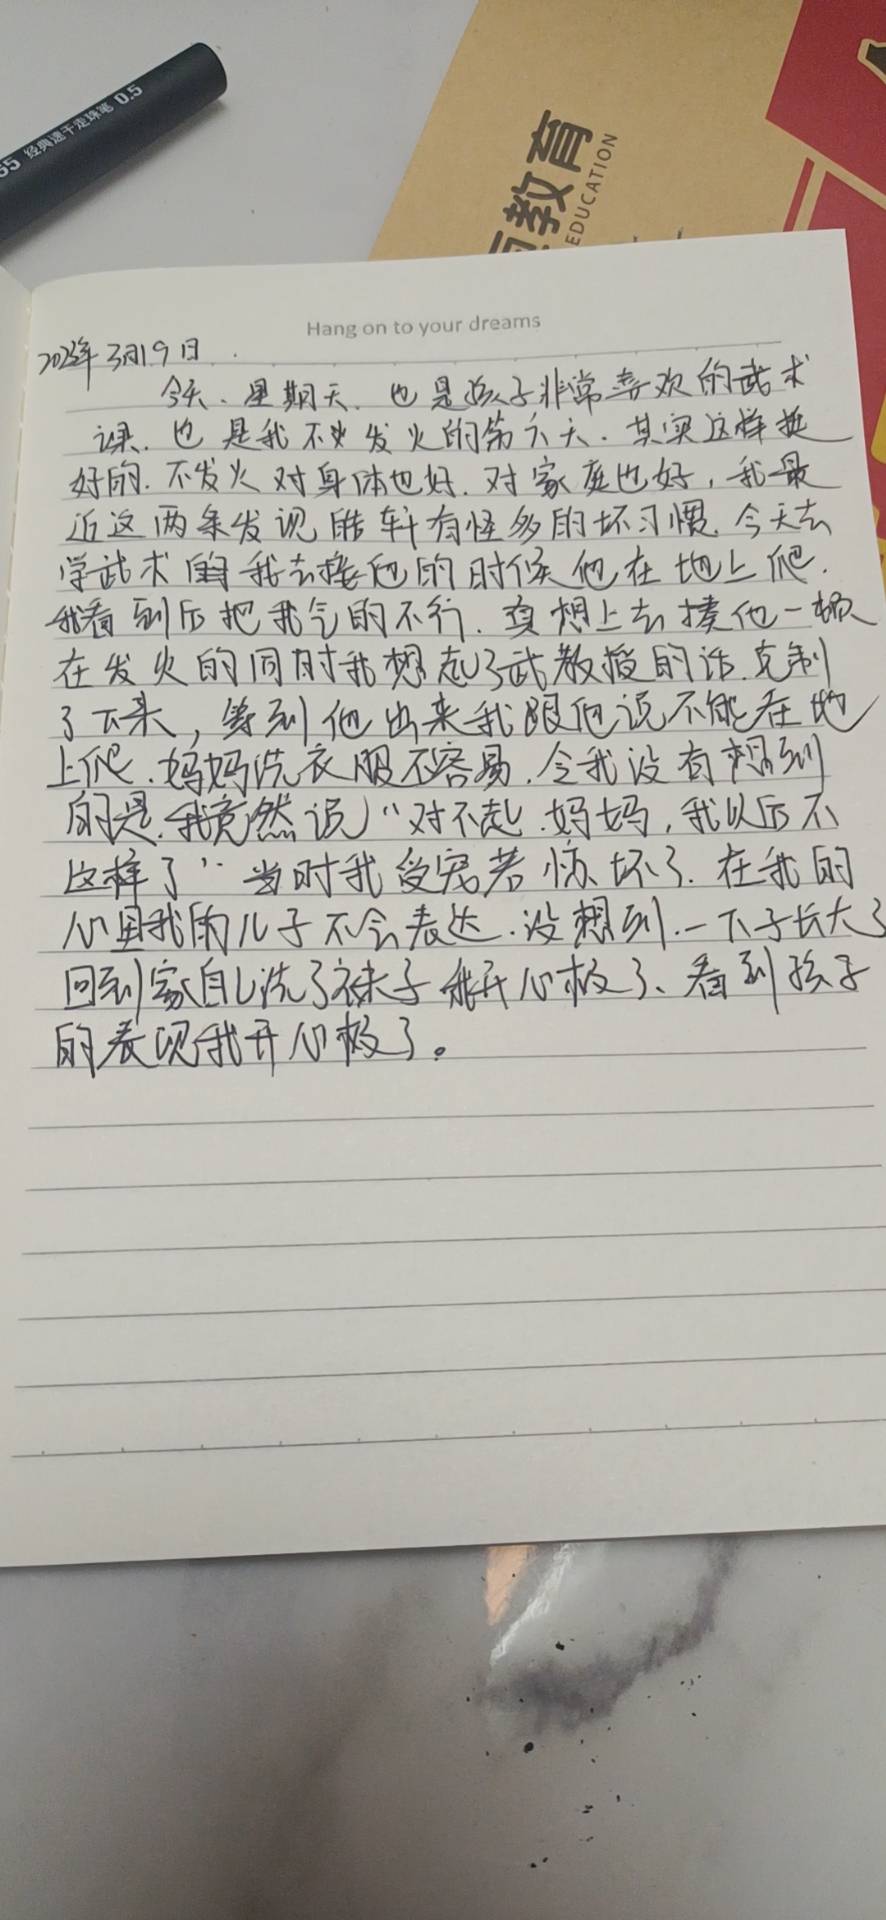 55 经典速干走珠笔 0.5
教育
EDUCATION
Hang on to your dreams
2023年3月19日
今天、星期天、也是孩子非常喜欢的武术
课.也是我不发火的第六天.其实这样挺
好的.不发火对身体也好.对家庭也好,我最
近这两条发现皓轩有怪多的坏习惯.今天去
学武术 我去接他的时候他在地上爬.
我看到后把我气的不行.真想上去揍他一顿
在发火的同时我想起了武教授的话.克制
了下来,等到他出来我跟他说不能在地
上爬.妈妈洗衣服不容易.令我没有想到
的是.我竟然说"对不起.妈妈,我以后不
这样了"当时我受宠若惊坏了.在我的
心里我的儿子不会表达.没想到.一下子长大了
回到家自己洗了袜子 我开心极了、看到孩子
的表现我开心极了。